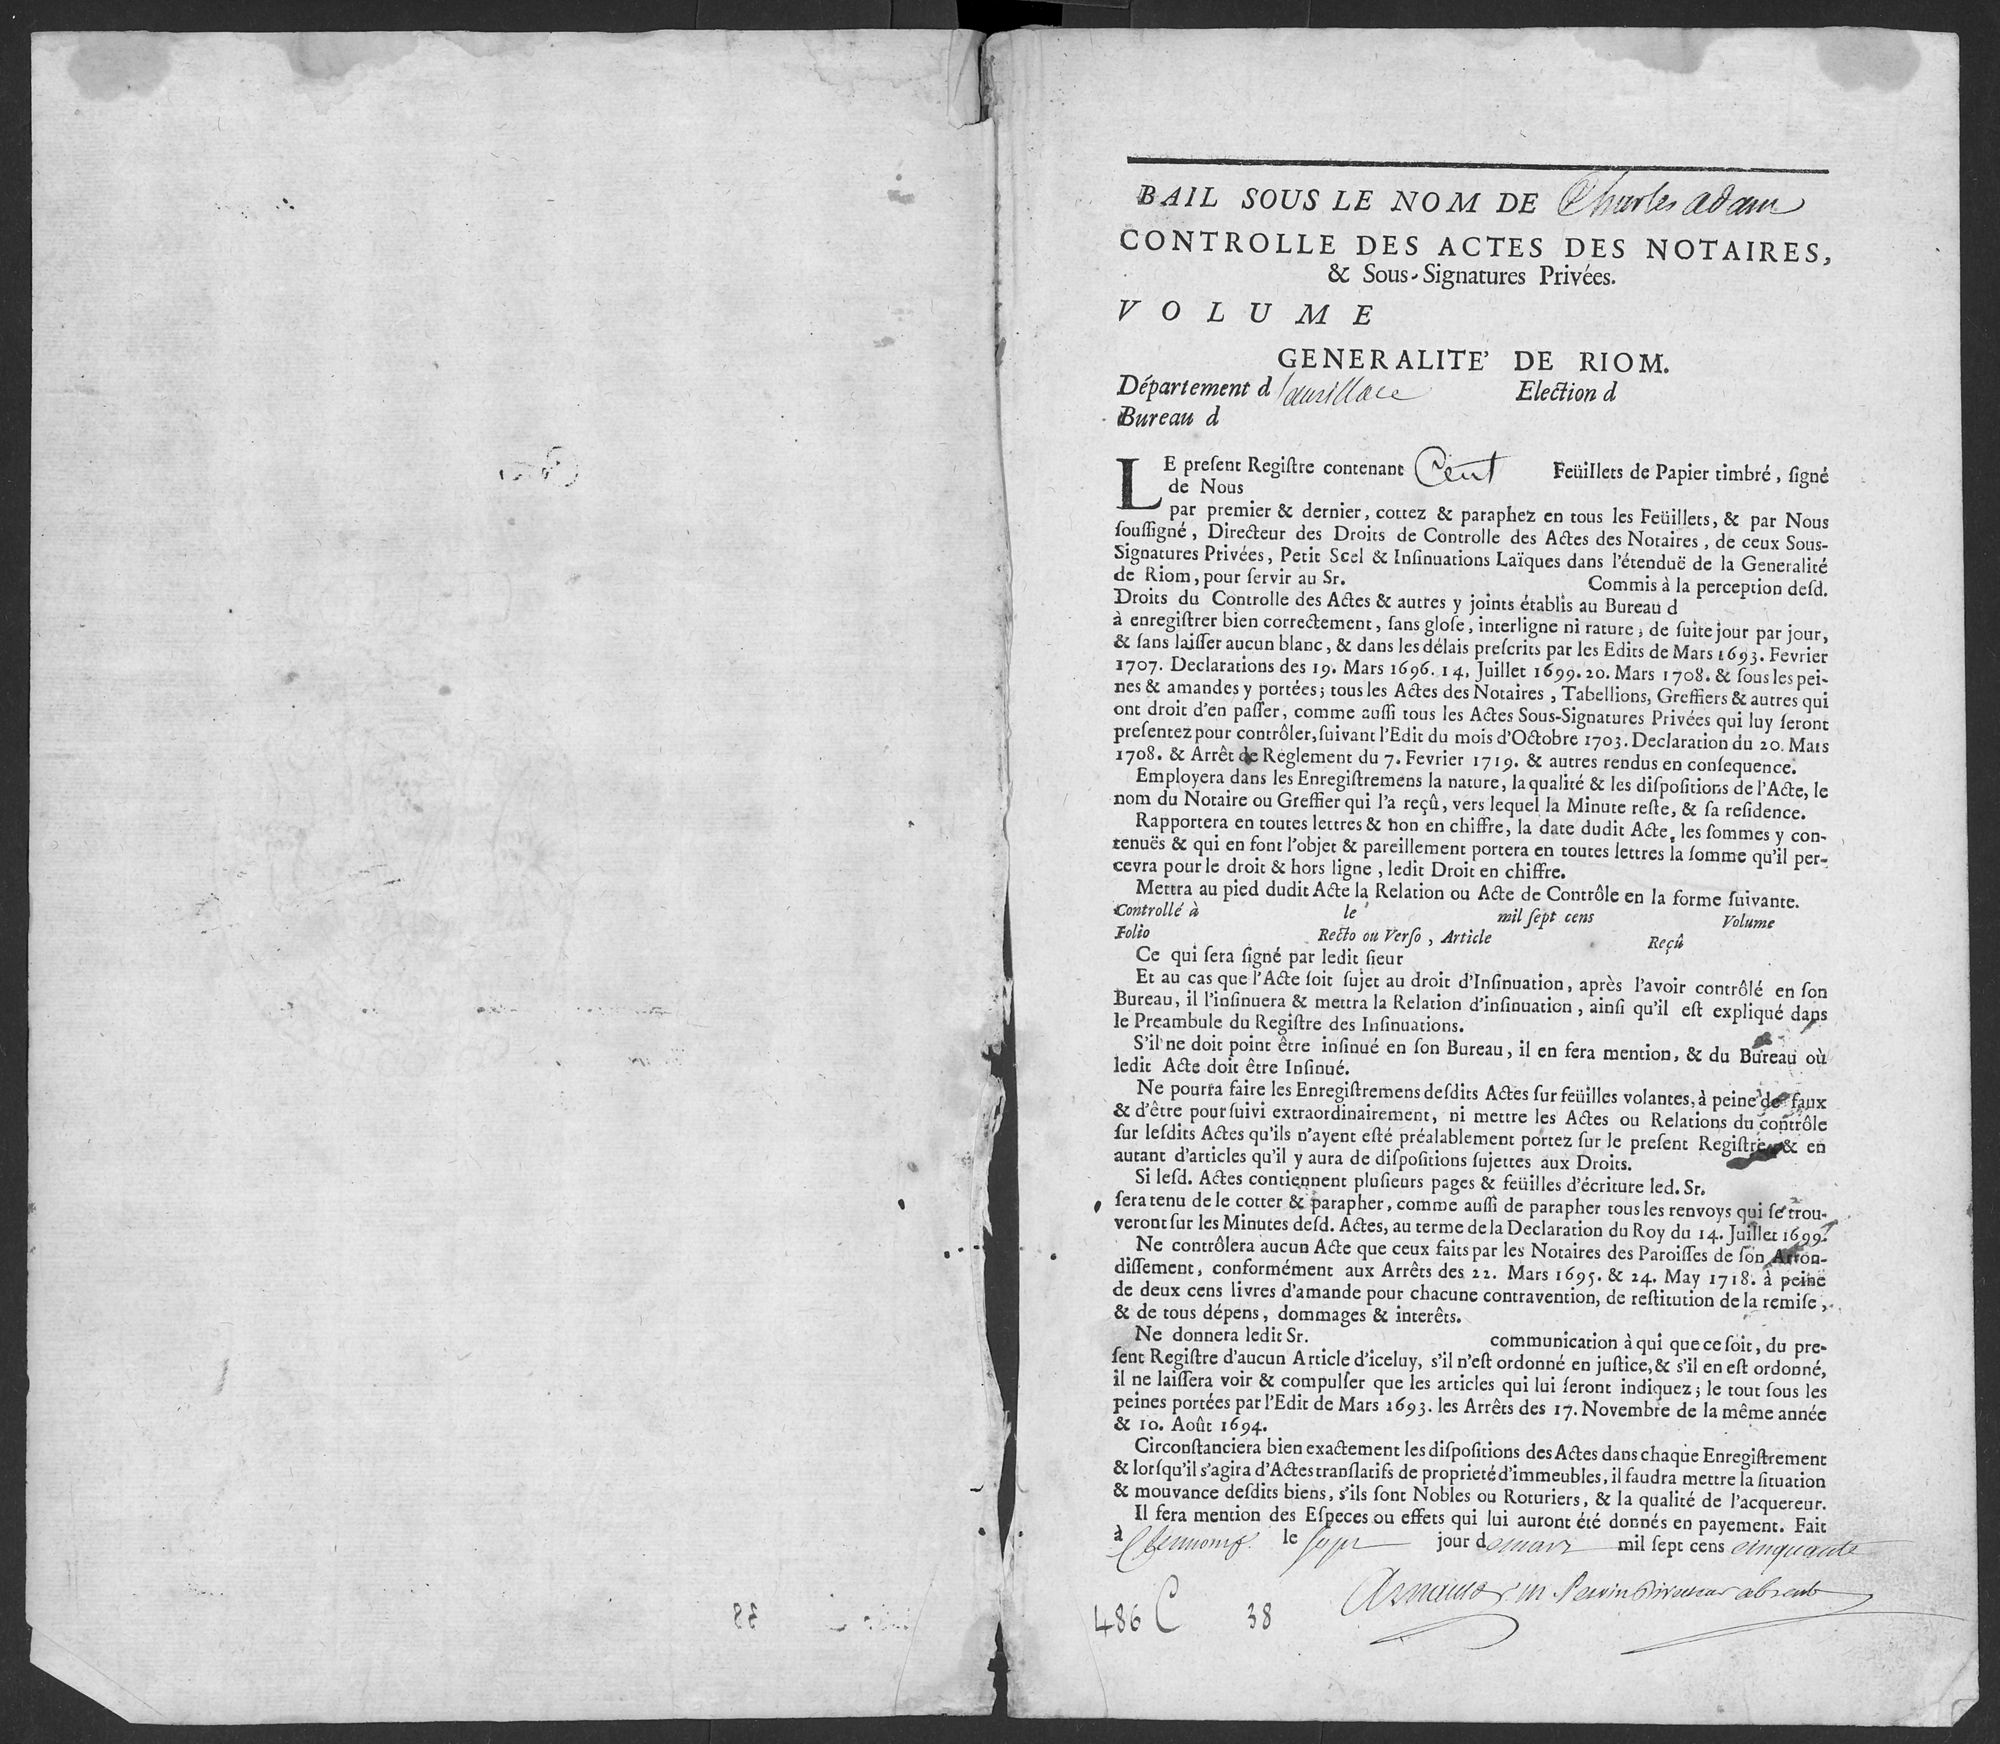 BAIL SOUS LE NOM DE Charles adam
CONTROLLE DES ACTES DES NOTAIRES,
& Sous-Signatures Privées.
VOLUME
GENERALITE' DE RIOM.
Département d'aurillac Election d
Bureau d
LE preſent Regiſtre contenant Cent Feüillets de Papier timbré, ſigné
de Nous
par premier & dernier, cottez & paraphez en tous les Feüillets, & par Nous
ſouſſigné, Directeur des Droits de Controlle des Actes des Notaires, de ceux Sous-
Signatures Privées, Petit Scel & Inſinuations Laïques dans l'étenduë de la Generalité
de Riom, pour ſervir au Sr. Commis à la perception deſd.
Droits du Controlle des Actes & autres y joints établis au Bureau d
à enregiſtrer bien correctement, ſans gloſe, interligne ni rature, de ſuite jour par jour,
& ſans laiſſer aucun blanc, & dans les délais preſcrits par les Edits de Mars 1693. Fevrier
1707. Declarations des 19. Mars 1696. 14. Juillet 1699. 20. Mars 1708. & ſous les pei-
nes & amandes y portées; tous les Actes des Notaires, Tabellions, Greffiers & autres qui
ont droit d'en paſſer, comme auſſi tous les Actes Sous-Signatures Privées qui luy ſeront
preſentez pour contrôler, ſuivant l'Edit du mois d'Octobre 1703. Declaration du 20. Mars
1708. & Arrêt de Reglement du 7. Fevrier 1719. & autres rendus en conſequence.
Employera dans les Enregiſtremens la nature, la qualité & les diſpoſitions de l'Acte, le
nom du Notaire ou Greffier qui l'a reçû, vers lequel la Minute reſte, & ſa reſidence.
Rapportera en toutes lettres & non en chiffre, la date dudit Acte, les ſommes y con-
tenuës & qui en font l'objet & pareillement portera en toutes lettres la ſomme qu'il per-
cevra pour le droit & hors ligne, ledit Droit en chiffre.
Mettra au pied dudit Acte la Relation ou Acte de Contrôle en la forme ſuivante.
Controllé à le mil ſept cens Volume
Folio Recto ou Verſo, Article Reçû
Ce qui ſera ſigné par ledit ſieur
Et au cas que l'Acte ſoit ſujet au droit d'Inſinuation, après l'avoir contrôlé en ſon
Bureau, il l'inſinuera & mettra la Relation d'inſinuation, ainſi qu'il eſt expliqué dans
le Preambule du Regiſtre des Inſinuations.
S'il ne doit point être inſinué en ſon Bureau, il en fera mention, & du Bureau où
ledit Acte doit être Inſinué.
Ne pourra faire les Enregiſtremens deſdits Actes ſur feüilles volantes, à peine de faux
& d'être pourſuivi extraordinairement, ni mettre les Actes ou Relations du contrôle
ſur leſdits Actes qu'ils n'ayent eſté préalablement portez ſur le preſent Regiſtre, & en
autant d'articles qu'il y aura de diſpoſitions ſujettes aux Droits.
Si leſd. Actes contiennent pluſieurs pages & feüilles d'écriture led. Sr.
ſera tenu de le cotter & parapher, comme auſſi de parapher tous les renvoys qui ſe trou-
veront ſur les Minutes deſd. Actes, au terme de la Declaration du Roy du 14. Juillet 1699.
Ne contrôlera aucun Acte que ceux faits par les Notaires des Paroiſſes de ſon Arron-
diſſement, conformément aux Arrêts des 22. Mars 1695. & 24. May 1718. à peine
de deux cens livres d'amande pour chacune contravention, de reſtitution de la remiſe,
& de tous dépens, dommages & interêts.
Ne donnera ledit Sr. communication à qui que ce ſoit, du pre-
ſent Regiſtre d'aucun Article d'iceluy, s'il n'eſt ordonné en juſtice, & s'il en eſt ordonné,
il ne laiſſera voir & compulſer que les articles qui lui ſeront indiquez; le tout ſous les
peines portées par l'Edit de Mars 1693. les Arrêts des 17. Novembre de la même année
& 10. Août 1694.
Circonſtanciera bien exactement les diſpoſitions des Actes dans chaque Enregiſtrement
& lorſqu'il s'agira d'Actes tranſlatifs de proprieté d'immeubles, il faudra mettre la ſituation
& mouvance deſdits biens, s'ils ſont Nobles ou Roturiers, & la qualité de l'acquereur.
Il fera mention des Eſpeces ou effets qui lui auront été donnés en payement. Fait
à Clermont le sept jour de mars mil ſept cens cinquante
absent
486 C 38